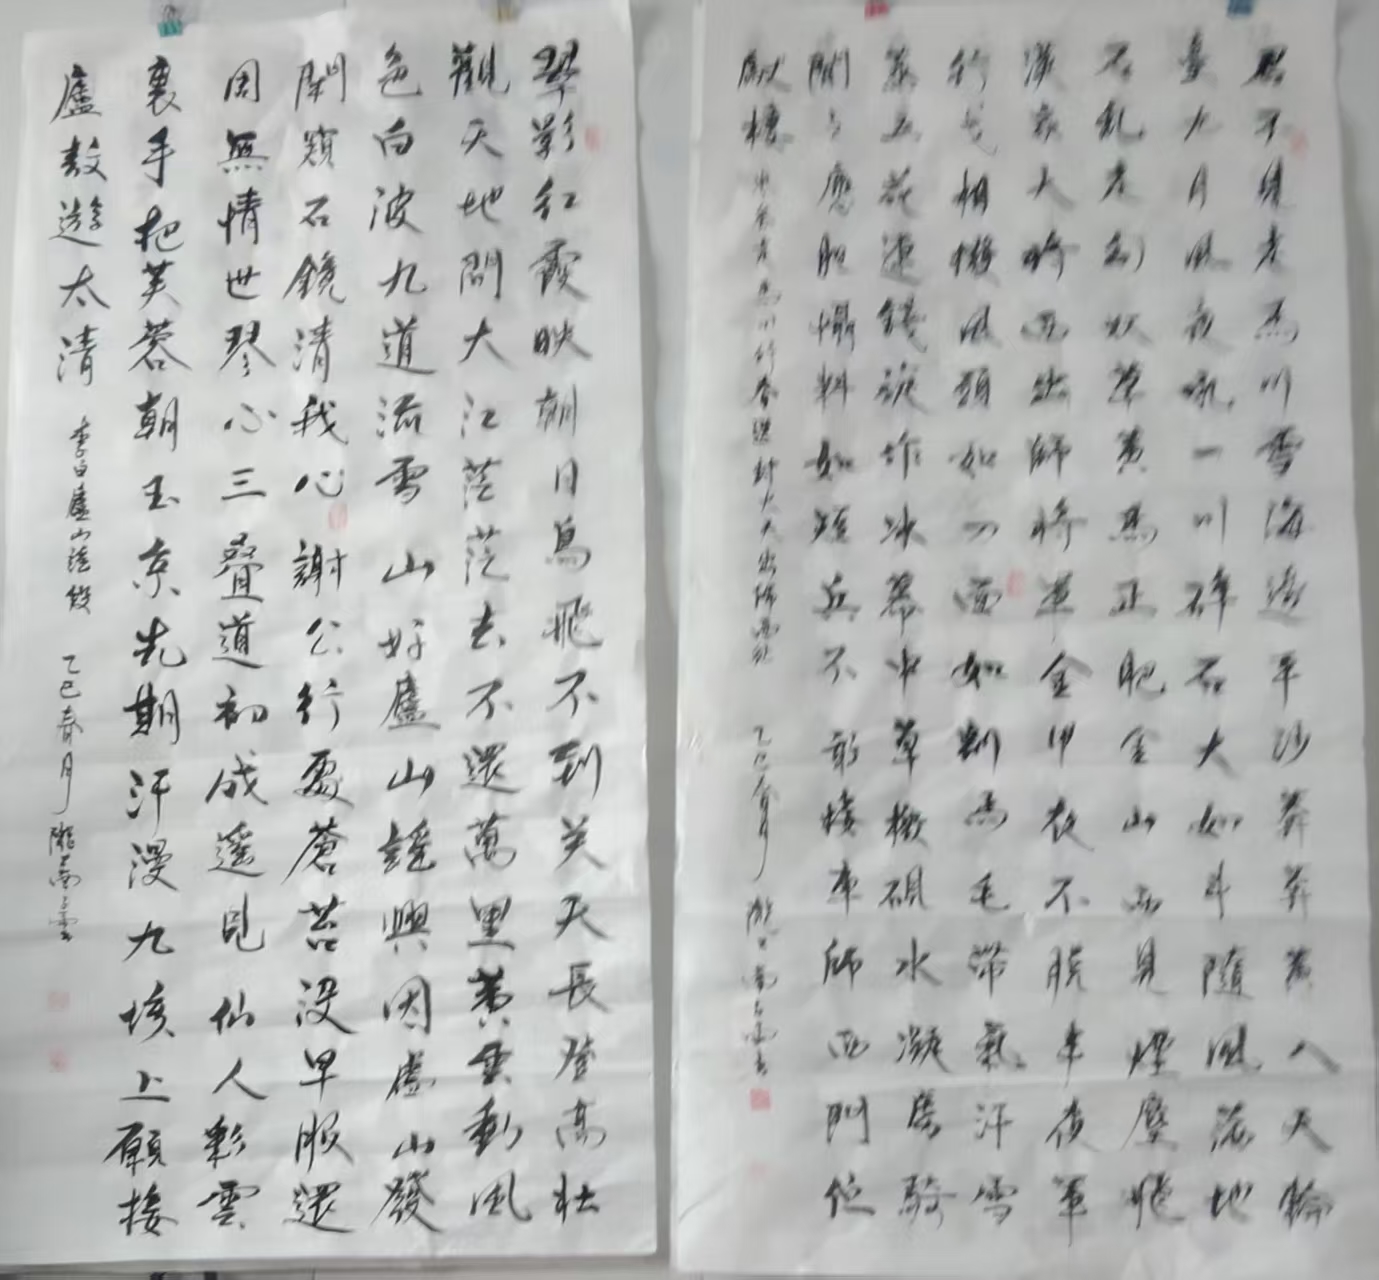 君不見走馬川雪海邊平沙莽莽黃入天輪
臺九月風夜吼一川碎石大如斗隨風滿地
石亂走匈奴草黃馬正肥金山西見煙塵飛
漢家大將西出師將軍金甲夜不脫半夜軍
行戈相撥風頭如刀面如割馬毛帶氣汗雪
蒸五花連錢旋作冰幕中草檄硯水凝虜騎
聞之應膽懾料知短兵不敢接車師西門佇
獻捷
岑參走馬川行奉送封大夫出師西征 乙巳春月
翠影紅霞映朝日鳥飛不到关天長登高壯
觀天地間大江茫茫去不還萬里黃雲動風
色白波九道流雪山好廬山謠興因廬山發
閑窺石鏡清我心謝公行處蒼苔没早服還
周無情世琴心三叠道初成遥見仙人彩雲
裏手把芙蓉朝玉京先期汗漫九垓上願接
盧敖遊太清
李白廬山謠段 乙巳春月